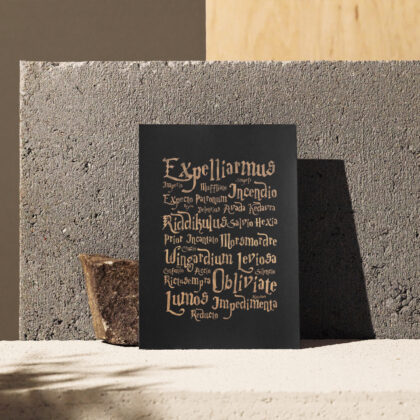 Expelliarmus
Impedio Muffliato Incendio
Expecto Patronum
Avada Kedavra
Riddikulus Salvio Hexia
Prior Incantato Morsmordre
Wingardium Leviosa
Confundo Accio Silencio
Rictosempra Obliviate
Lumos Impedimenta
Reducto